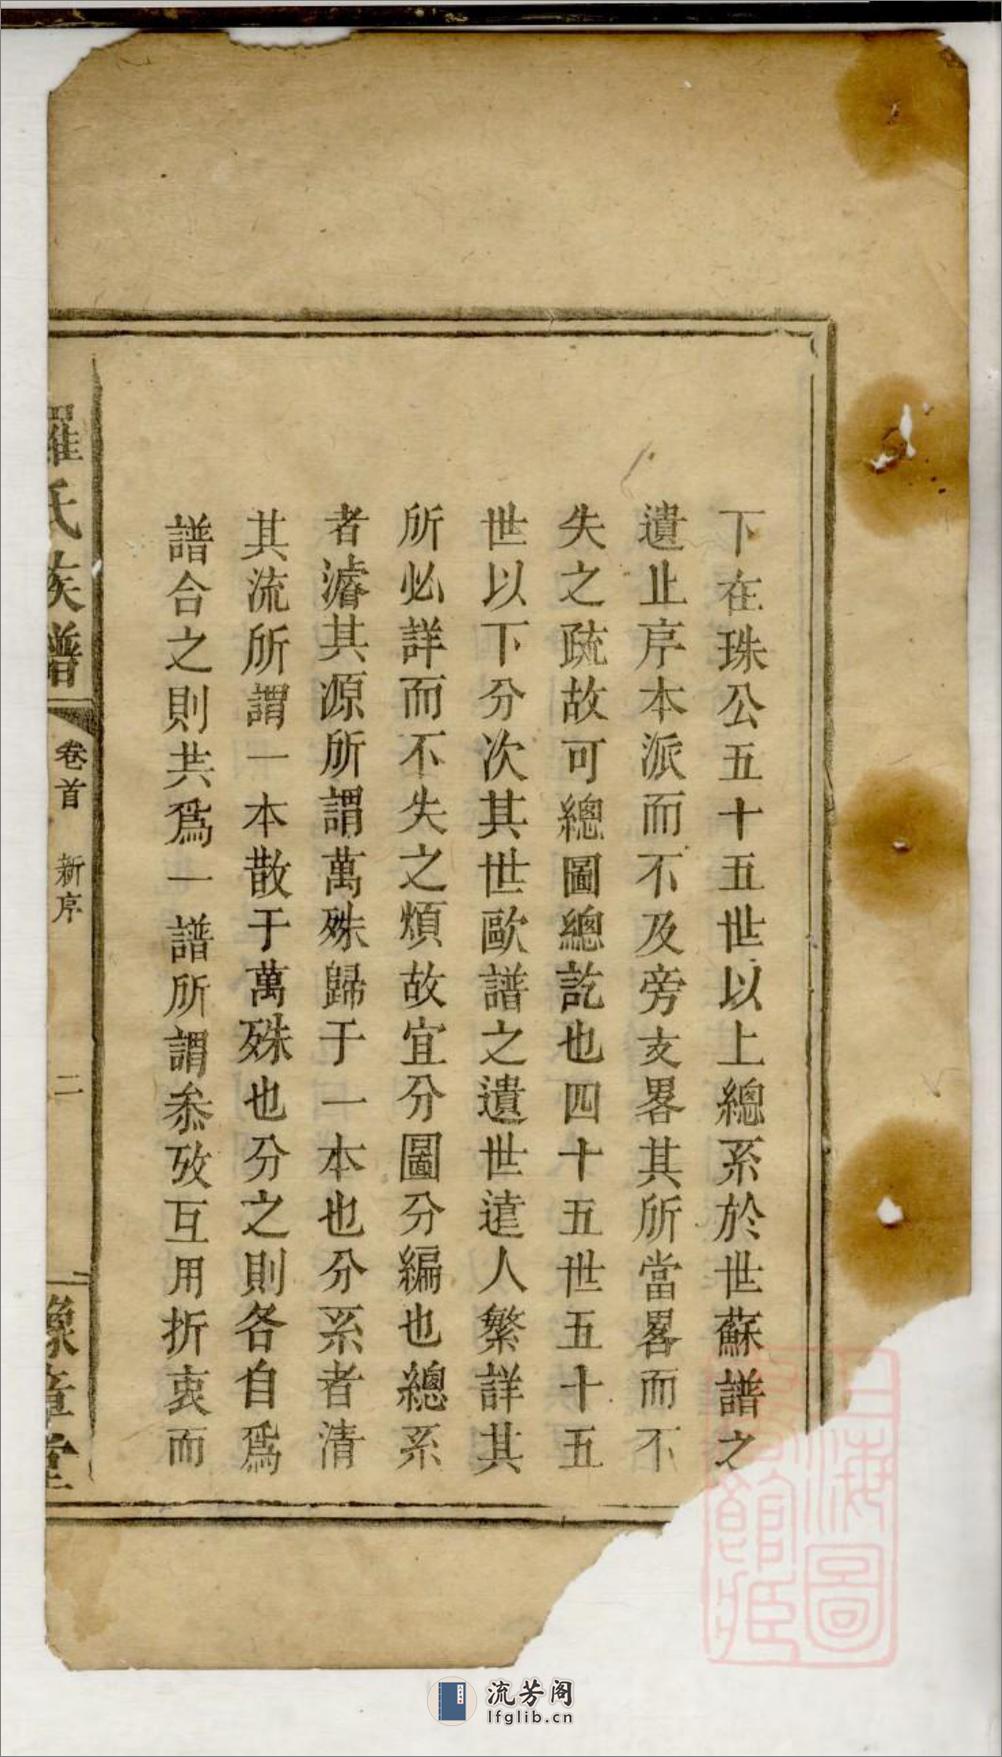 下在珠公五十五世以上總系於世蘇譜之
遺止序本派而不及旁支畧其所當畧而不
失之疏故可總圖總訖也四十五世五十五
世以下分次其世歐譜之遺世遠人繁詳其
所必詳而不失之煩故宜分圖分編也總系
者濬其源所謂萬殊歸于一本也分系者清
其流所謂一本散于萬殊也分之則各自爲
譜合之則共爲一譜所謂叅攷互用折衷而
羅氏族譜
卷首
新序
二
豫章堂
上海圖
書館藏
流芳阁
lfglib.cn